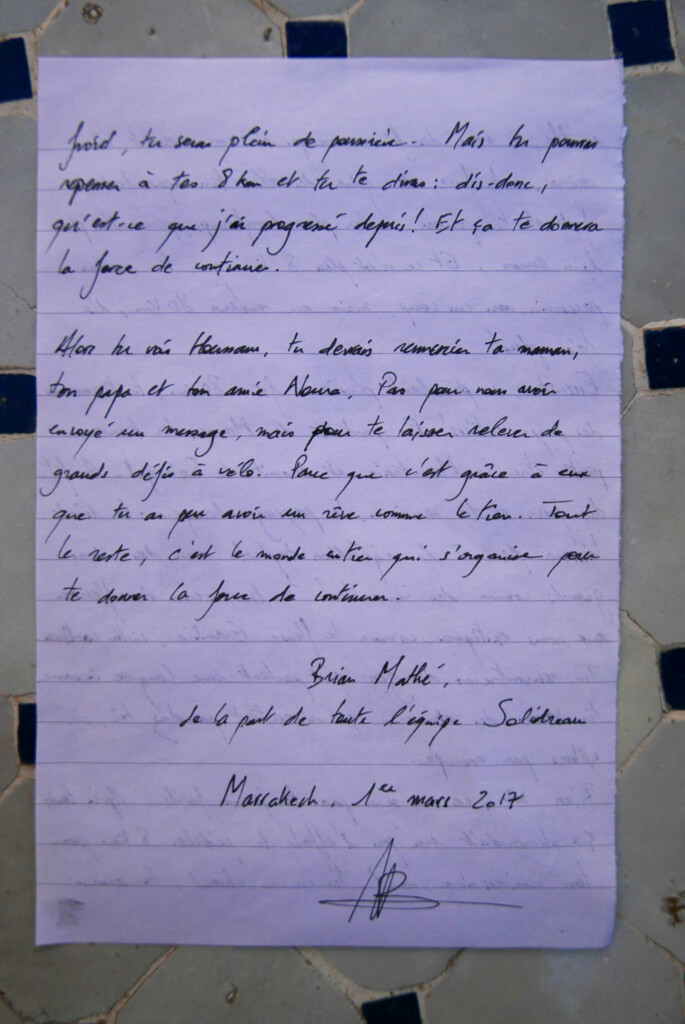 froid, tu seras plein de poussière. Mais tu pourras
repenser à tes 8 km et tu te diras : dis-donc,
qu'est-ce que j'ai progressé depuis ! Et ça te donnera
la force de continuer.
Alors tu vois Houssam, tu devrais remercier ta maman,
ton papa et ton amie Noura. Pas pour nous avoir
envoyé un message, mais pour te laisser relever de
grands défis à vélo. Parce que c'est grâce à eux
que tu as pu avoir un rêve comme le tien. Tout
le reste, c'est le monde entier qui s'organise pour
te donner la force de continuer.
Brian Mathé,
de la part de toute l'équipe Solidream
Marrakech, 1er mars 2017